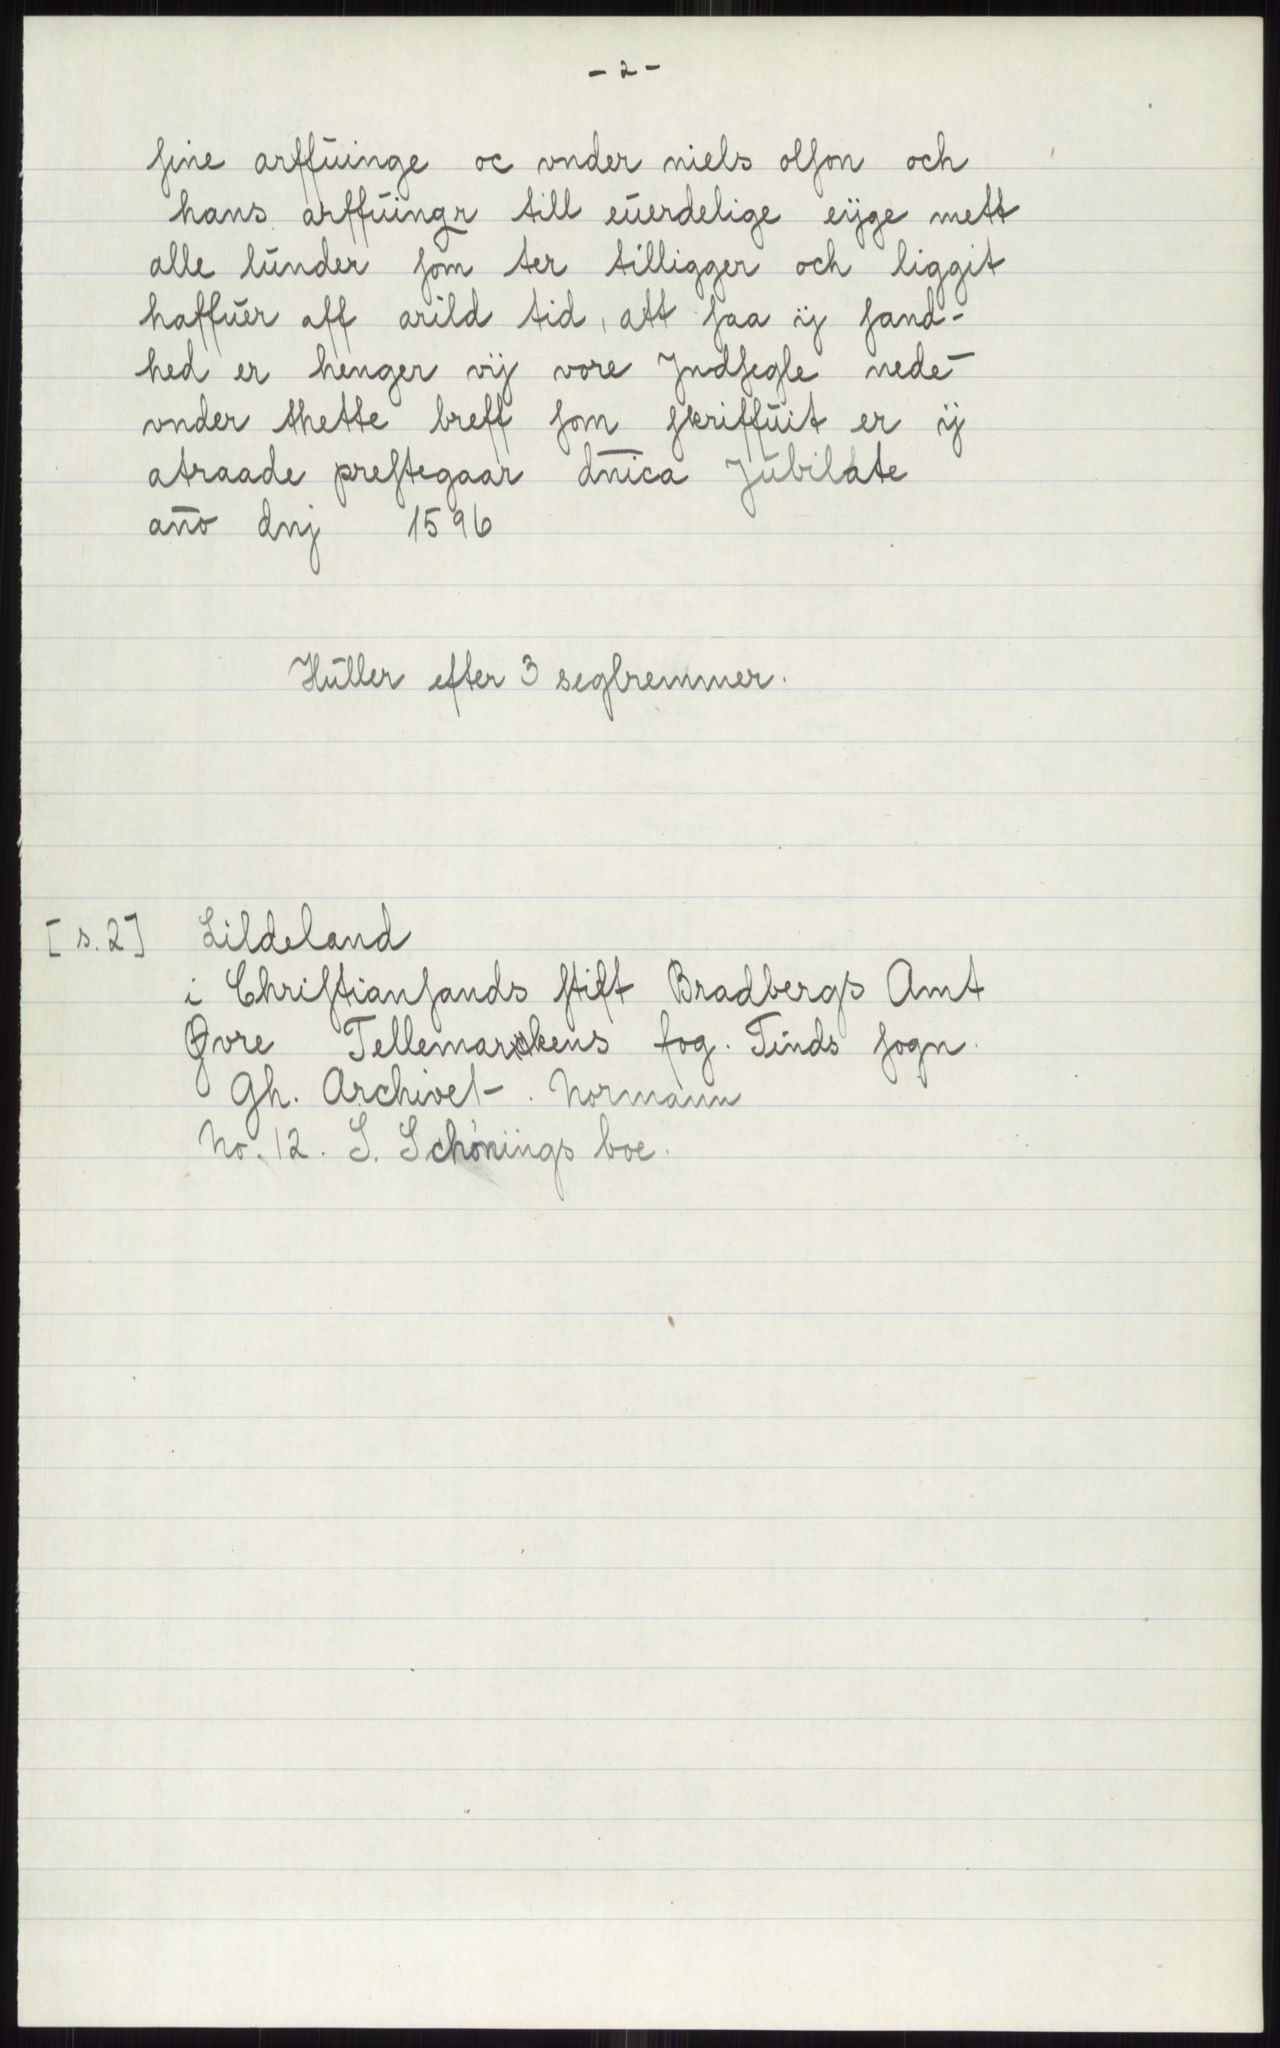 - 2 -
ſine arffŭinge oc vnder niels olſon och
hans arffŭingr till eŭerdelige eÿge mett
alle lŭnder ſom ter tilligger och liggit
haffŭer aff arild tid, att ſaa ij ſand-
hed er henger vij vore Jndſegle nede-
vnder thette breff ſom ſkriffŭit er ij
atraade preſtegaar dn̄ica Jŭbilate
an̄o dnj 1596
Hŭller efter 3 seglremmer.
[s. 2] Lildeland
i Chriſtianſands ſtift Bradbergs Amt
Øvre Tellemarckens fog. Tinds ſogn.
Gh. Archivet. Normann
No. 12. S. Schönings boe.